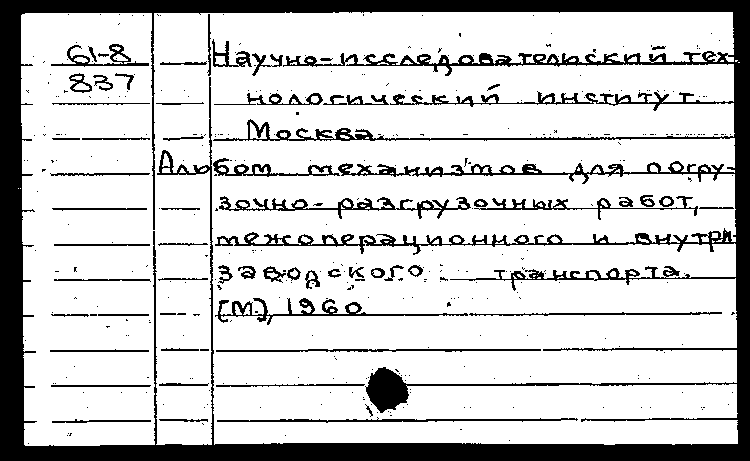 61-8 Научно-исследовательский тех-
837 нологический институт.
Москва.
Альбом механизмов для погру-
зочно-разгрузочных работ,
межоперационного и внутри-
заводского транспорта.
[М.], 1960